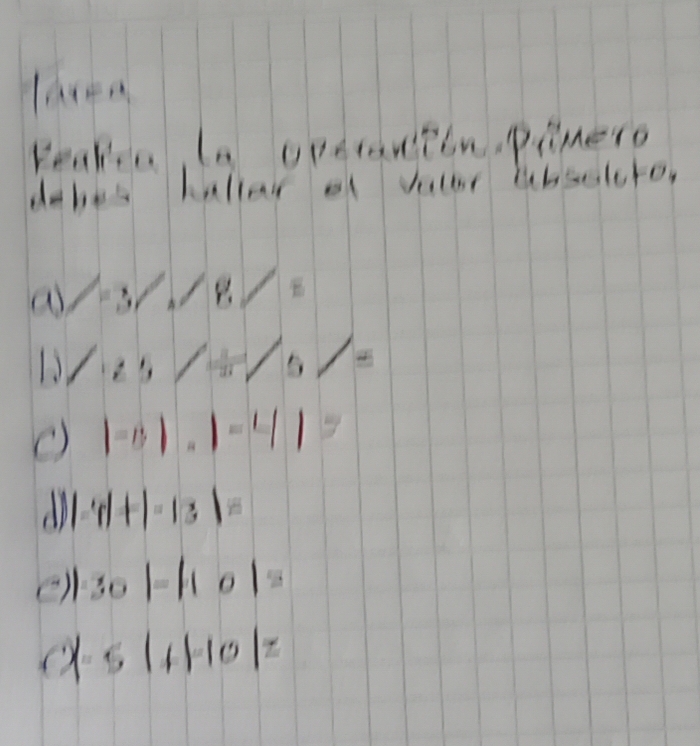 Tarea
Realiza la operación. Primero
debes hallar el valor absoluto.
a) /-3/./8/ =
b) /-25/÷/5/=
c) |-6|.|-4|=
d) |-9|+|-13|=
e) |-30|-|-10|=
|-5|+|-10|=